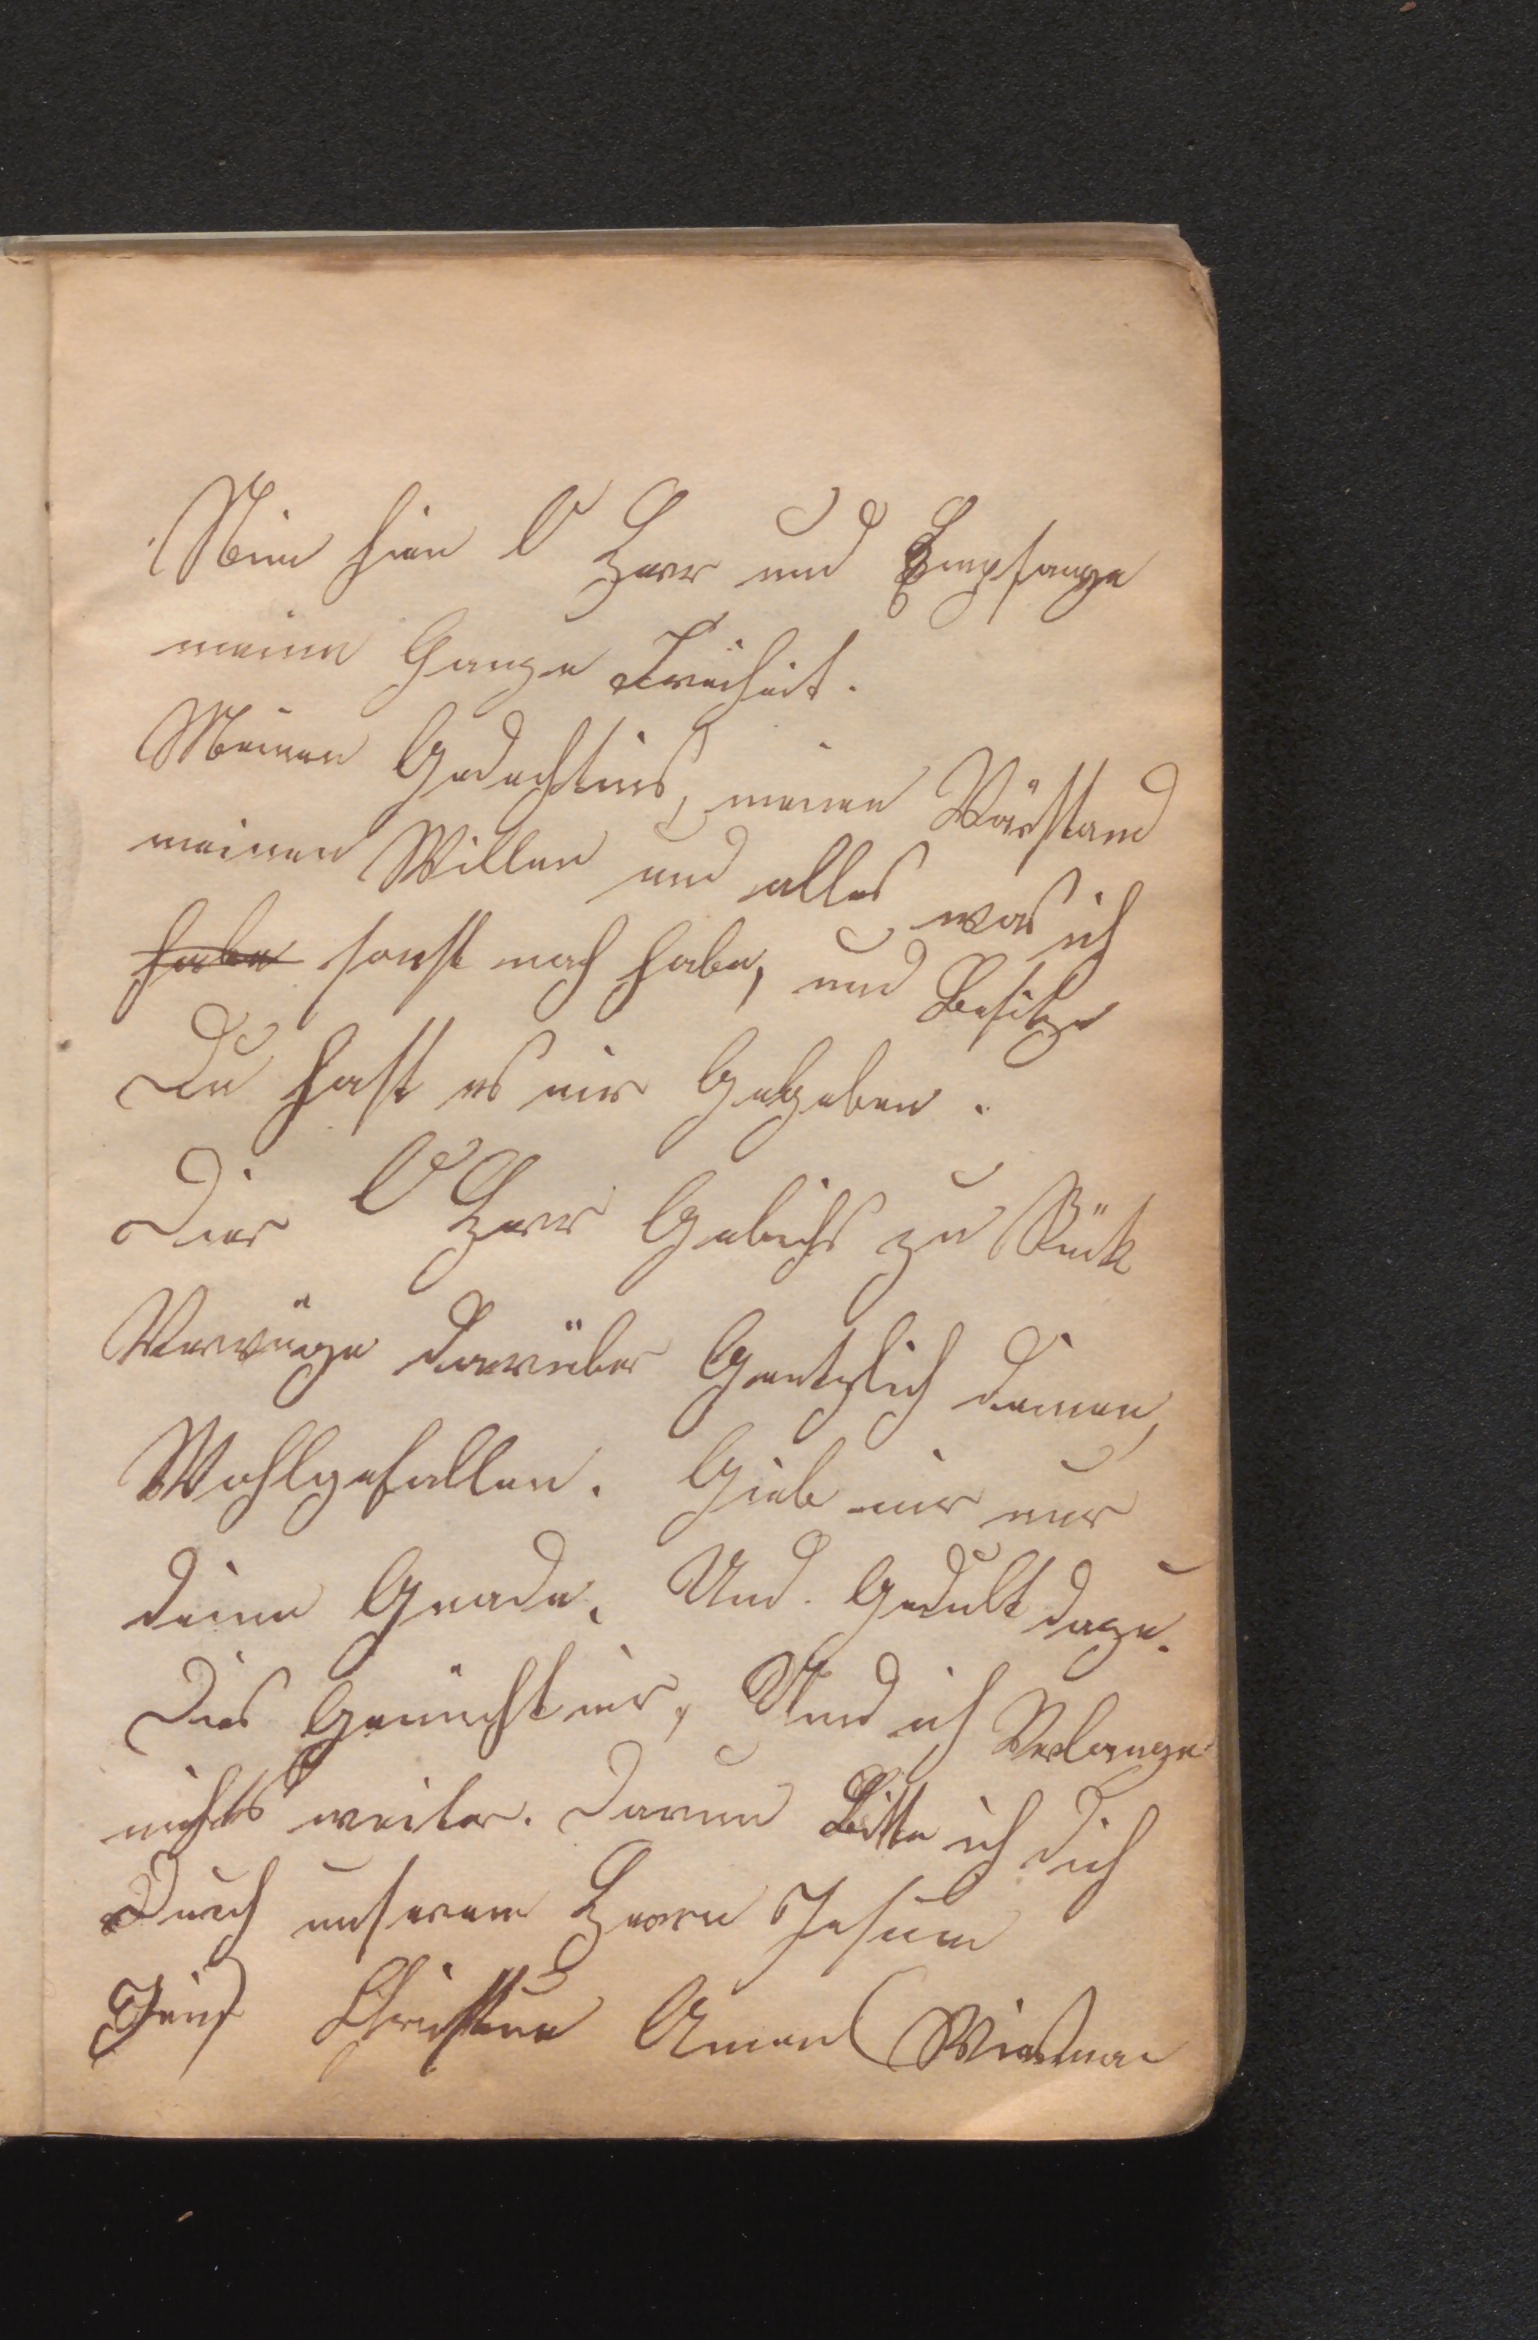 Nim hier O Herr und Empfange
meine Ganze Freiheit.
Meinen Gedechtnis, meinen Verstand
meinen Willen und alles was ich
habe sonst noch habe, und Besitze
Du hast es mir Gegeben.
Dir O Herr Gebichs zu Rück
Vervüge darüber Gentzlich deinen
Wohlgefallen. Gieb mir nur
deine Gnade, Und Gedult dazu.
Dies Genücht mir, Und ich Verlange
nichts weiter. Darum Bitte ich dich
Durch unseren Herrn Jesum
Christum Amen